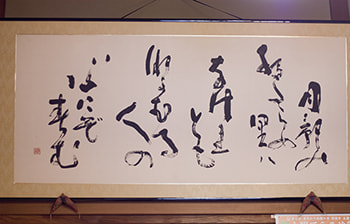 月影の
いたらぬ里は
なけれとも
眺むる
人の
心にぞ
すむ